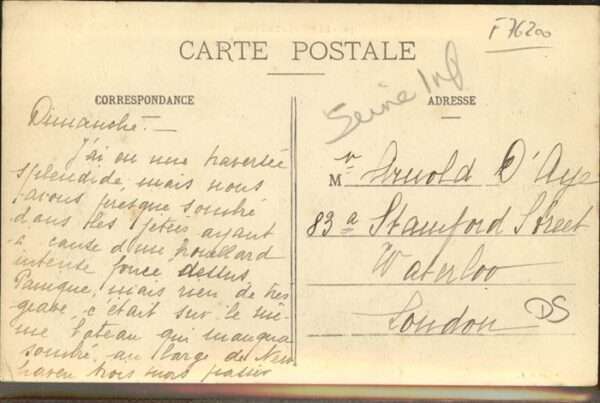 F 76200
CARTE POSTALE
Seine Inf
CORRESPONDANCE
ADRESSE
Dimanche. —
J'ai eu une traversée
splendide, mais nous
avons presque sombré
dans les jetées ayant
à cause d'un brouillard
intense foncé dessus
Panique, mais rien de très
grave, c'était sur le mê-
me bateau qui manqua
sombré au large de New
haven trois mois passés
Mr Arnold D'Ays
83a Stamford Street
Waterloo
London
DS